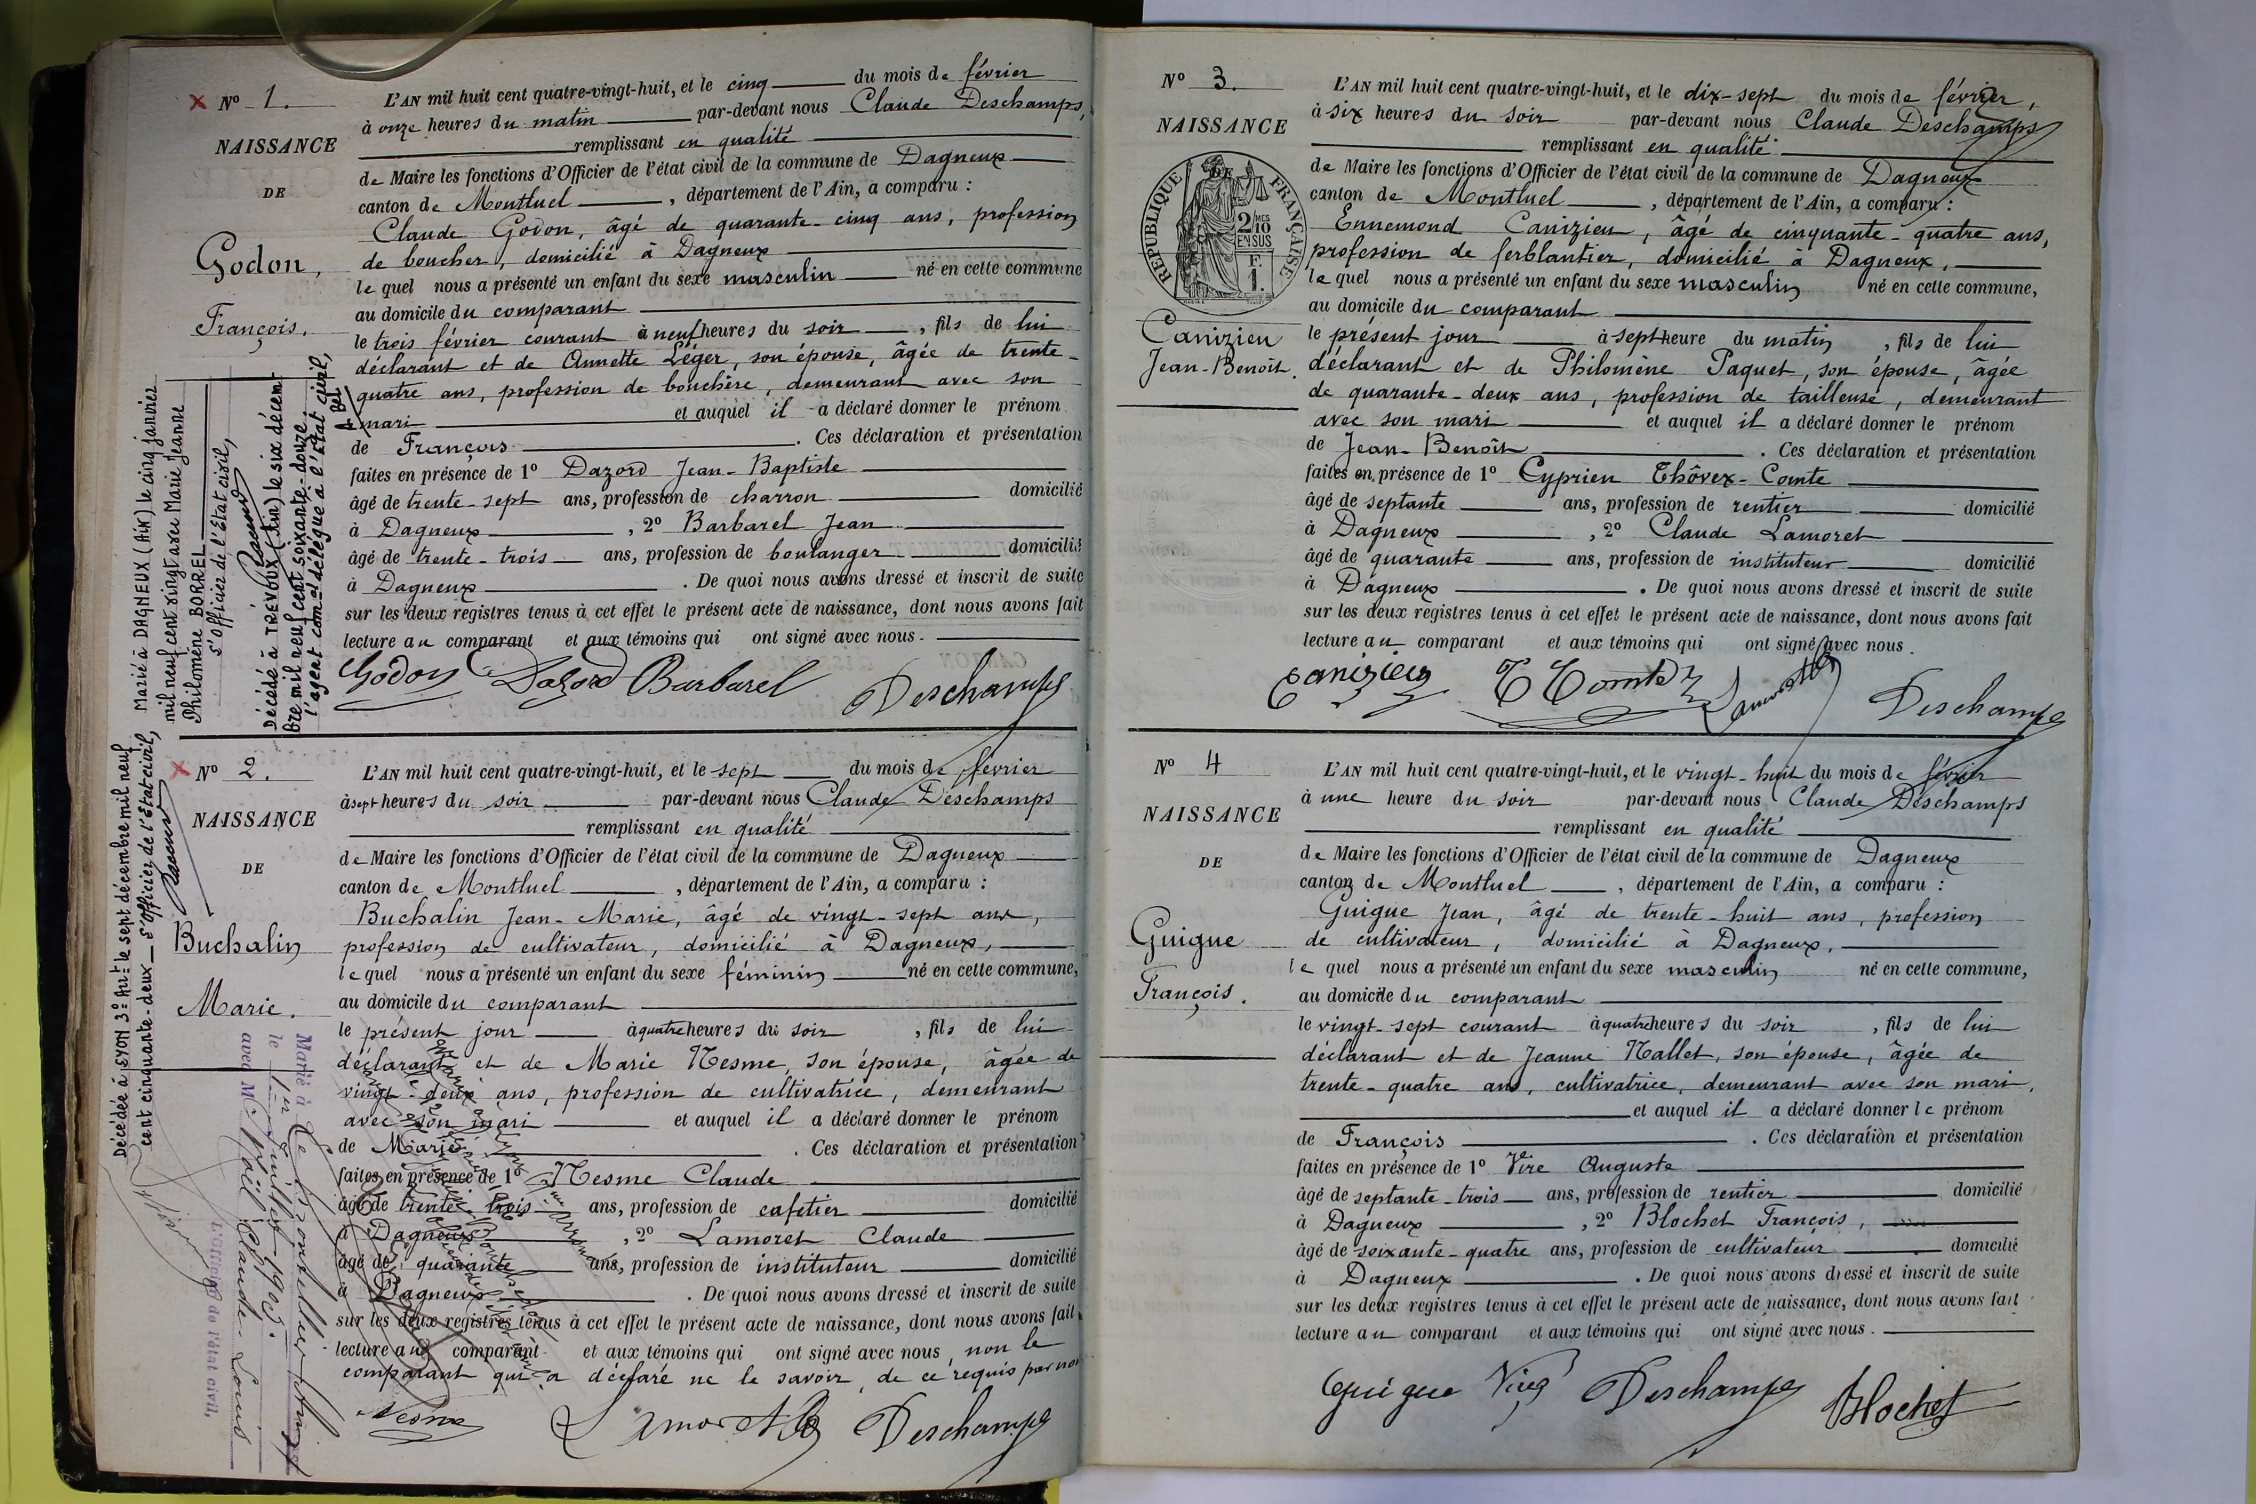 N° 1.
NAISSANCE
DE
Godon,
François.
L'AN mil huit cent quatre-vingt-huit, et le cinq du mois de février
à onze heures du matin par-devant nous Claude Deschamps,
remplissant en qualité
de Maire les fonctions d'Officier de l'état civil de la commune de Dagneux
canton de Montluel, département de l'Ain, a comparu :
Claude Godon, âgé de quarante-cinq ans, profession
de boucher, domicilié à Dagneux
lequel nous a présenté un enfant du sexe masculin né en cette commune
au domicile du comparant
le trois février courant à neuf heures du soir, fils de lui
déclarant et de Annette Léger, son épouse, âgée de trente-
quatre ans, profession de bouchère, demeurant avec son
mari et auquel il a déclaré donner le prénom
de François. Ces déclaration et présentation
faites en présence de 1° Dazord Jean-Baptiste
âgé de trente-sept ans, profession de charron domicilié
à Dagneux, 2° Barbarel Jean
âgé de trente-trois ans, profession de boulanger domicilié
à Dagneux. De quoi nous avons dressé et inscrit de suite
sur les deux registres tenus à cet effet le présent acte de naissance, dont nous avons fait
lecture au comparant et aux témoins qui ont signé avec nous.
Godon Dazord Barbarel Deschamps
Marié à DAGNEUX (Ain) le cinq janvier
mil neuf cent vingt avec Marie Jeanne
Philomène BORREL
s'officier de l'état civil,
Décédé à TRÉVOUX (Ain) le six décem-
bre mil neuf cent soixante-douze.
l'agent comal délégué à l'état civil,
N° 2.
NAISSANCE
DE
Buchalin
Marie.
L'AN mil huit cent quatre-vingt-huit, et le sept du mois de février
à sept heures du soir par-devant nous Claude Deschamps
remplissant en qualité
de Maire les fonctions d'Officier de l'état civil de la commune de Dagneux
canton de Montluel, département de l'Ain, a comparu :
Buchalin Jean-Marie, âgé de vingt-sept ans,
profession de cultivateur, domicilié à Dagneux,
lequel nous a présenté un enfant du sexe féminin né en cette commune,
au domicile du comparant
le présent jour à quatre heures du soir, fils de lui
déclarant et de Marie Nesme, son épouse, âgée de
vingt-deux ans, profession de cultivatrice, demeurant
avec son mari et auquel il a déclaré donner le prénom
de Marie. Ces déclaration et présentation
faites en présence de 1° Nesme Claude
âgé de trente-trois ans, profession de cafetier domicilié
à Dagneux, 2° Lamoret Claude
âgé de quarante ans, profession de instituteur domicilié
à Dagneux. De quoi nous avons dressé et inscrit de suite
sur les deux registres tenus à cet effet le présent acte de naissance, dont nous avons fait
lecture au comparant et aux témoins qui ont signé avec nous, non le
comparant qui a déclaré ne le savoir, de ce requis par nous
Nesme Lamoret Deschamps
Décédée à LYON 3° Art le sept décembre mil neuf
cent cinquante-deux s'officier de l'état civil,
Marié à
le 1er Juillet 1905.
avec Mr Noël Claude-Louis
L'Officier de l'état civil,
N° 3.
NAISSANCE
DE
RÉPUBLIQUE FRANÇAISE
2/10 MES
EN SUS
F.
1.
Canizieu
Jean-Benoît.
L'AN mil huit cent quatre-vingt-huit, et le dix-sept du mois de février,
à six heures du soir par-devant nous Claude Deschamps
remplissant en qualité
de Maire les fonctions d'Officier de l'état civil de la commune de Dagneux
canton de Montluel, département de l'Ain, a comparu :
Ennemond Canizieu, âgé de cinquante-quatre ans,
profession de ferblantier, domicilié à Dagneux,
lequel nous a présenté un enfant du sexe masculin né en cette commune,
au domicile du comparant
le présent jour à sept heure du matin, fils de lui
déclarant et de Philomène Paquet, son épouse, âgée
de quarante-deux ans, profession de tailleuse, demeurant
avec son mari et auquel il a déclaré donner le prénom
de Jean-Benoît. Ces déclaration et présentation
faites en présence de 1° Cyprien Thôvex-Comte
âgé de septante ans, profession de rentier domicilié
à Dagneux, 2° Claude Lamoret
âgé de quarante ans, profession de instituteur domicilié
à Dagneux. De quoi nous avons dressé et inscrit de suite
sur les deux registres tenus à cet effet le présent acte de naissance, dont nous avons fait
lecture au comparant et aux témoins qui ont signé avec nous.
Canizieu T Comte Lamoret Deschamps
N° 4
NAISSANCE
DE
Guigue
François.
L'AN mil huit cent quatre-vingt-huit, et le vingt-huit du mois de février
à une heure du soir par-devant nous Claude Deschamps
remplissant en qualité
de Maire les fonctions d'Officier de l'état civil de la commune de Dagneux
canton de Montluel, département de l'Ain, a comparu :
Guigue Jean, âgé de trente-huit ans, profession
de cultivateur, domicilié à Dagneux,
lequel nous a présenté un enfant du sexe masculin né en cette commune,
au domicile du comparant
le vingt-sept courant à quatre heures du soir, fils de lui
déclarant et de Jeanne Nallet, son épouse, âgée de
trente-quatre ans, cultivatrice, demeurant avec son mari,
et auquel il a déclaré donner le prénom
de François. Ces déclaration et présentation
faites en présence de 1° Vire Auguste
âgé de septante-trois ans, profession de rentier domicilié
à Dagneux, 2° Blochet François,
âgé de soixante-quatre ans, profession de cultivateur domicilié
à Dagneux. De quoi nous avons dressé et inscrit de suite
sur les deux registres tenus à cet effet le présent acte de naissance, dont nous avons fait
lecture au comparant et aux témoins qui ont signé avec nous.
Guigue Deschamps Blochet